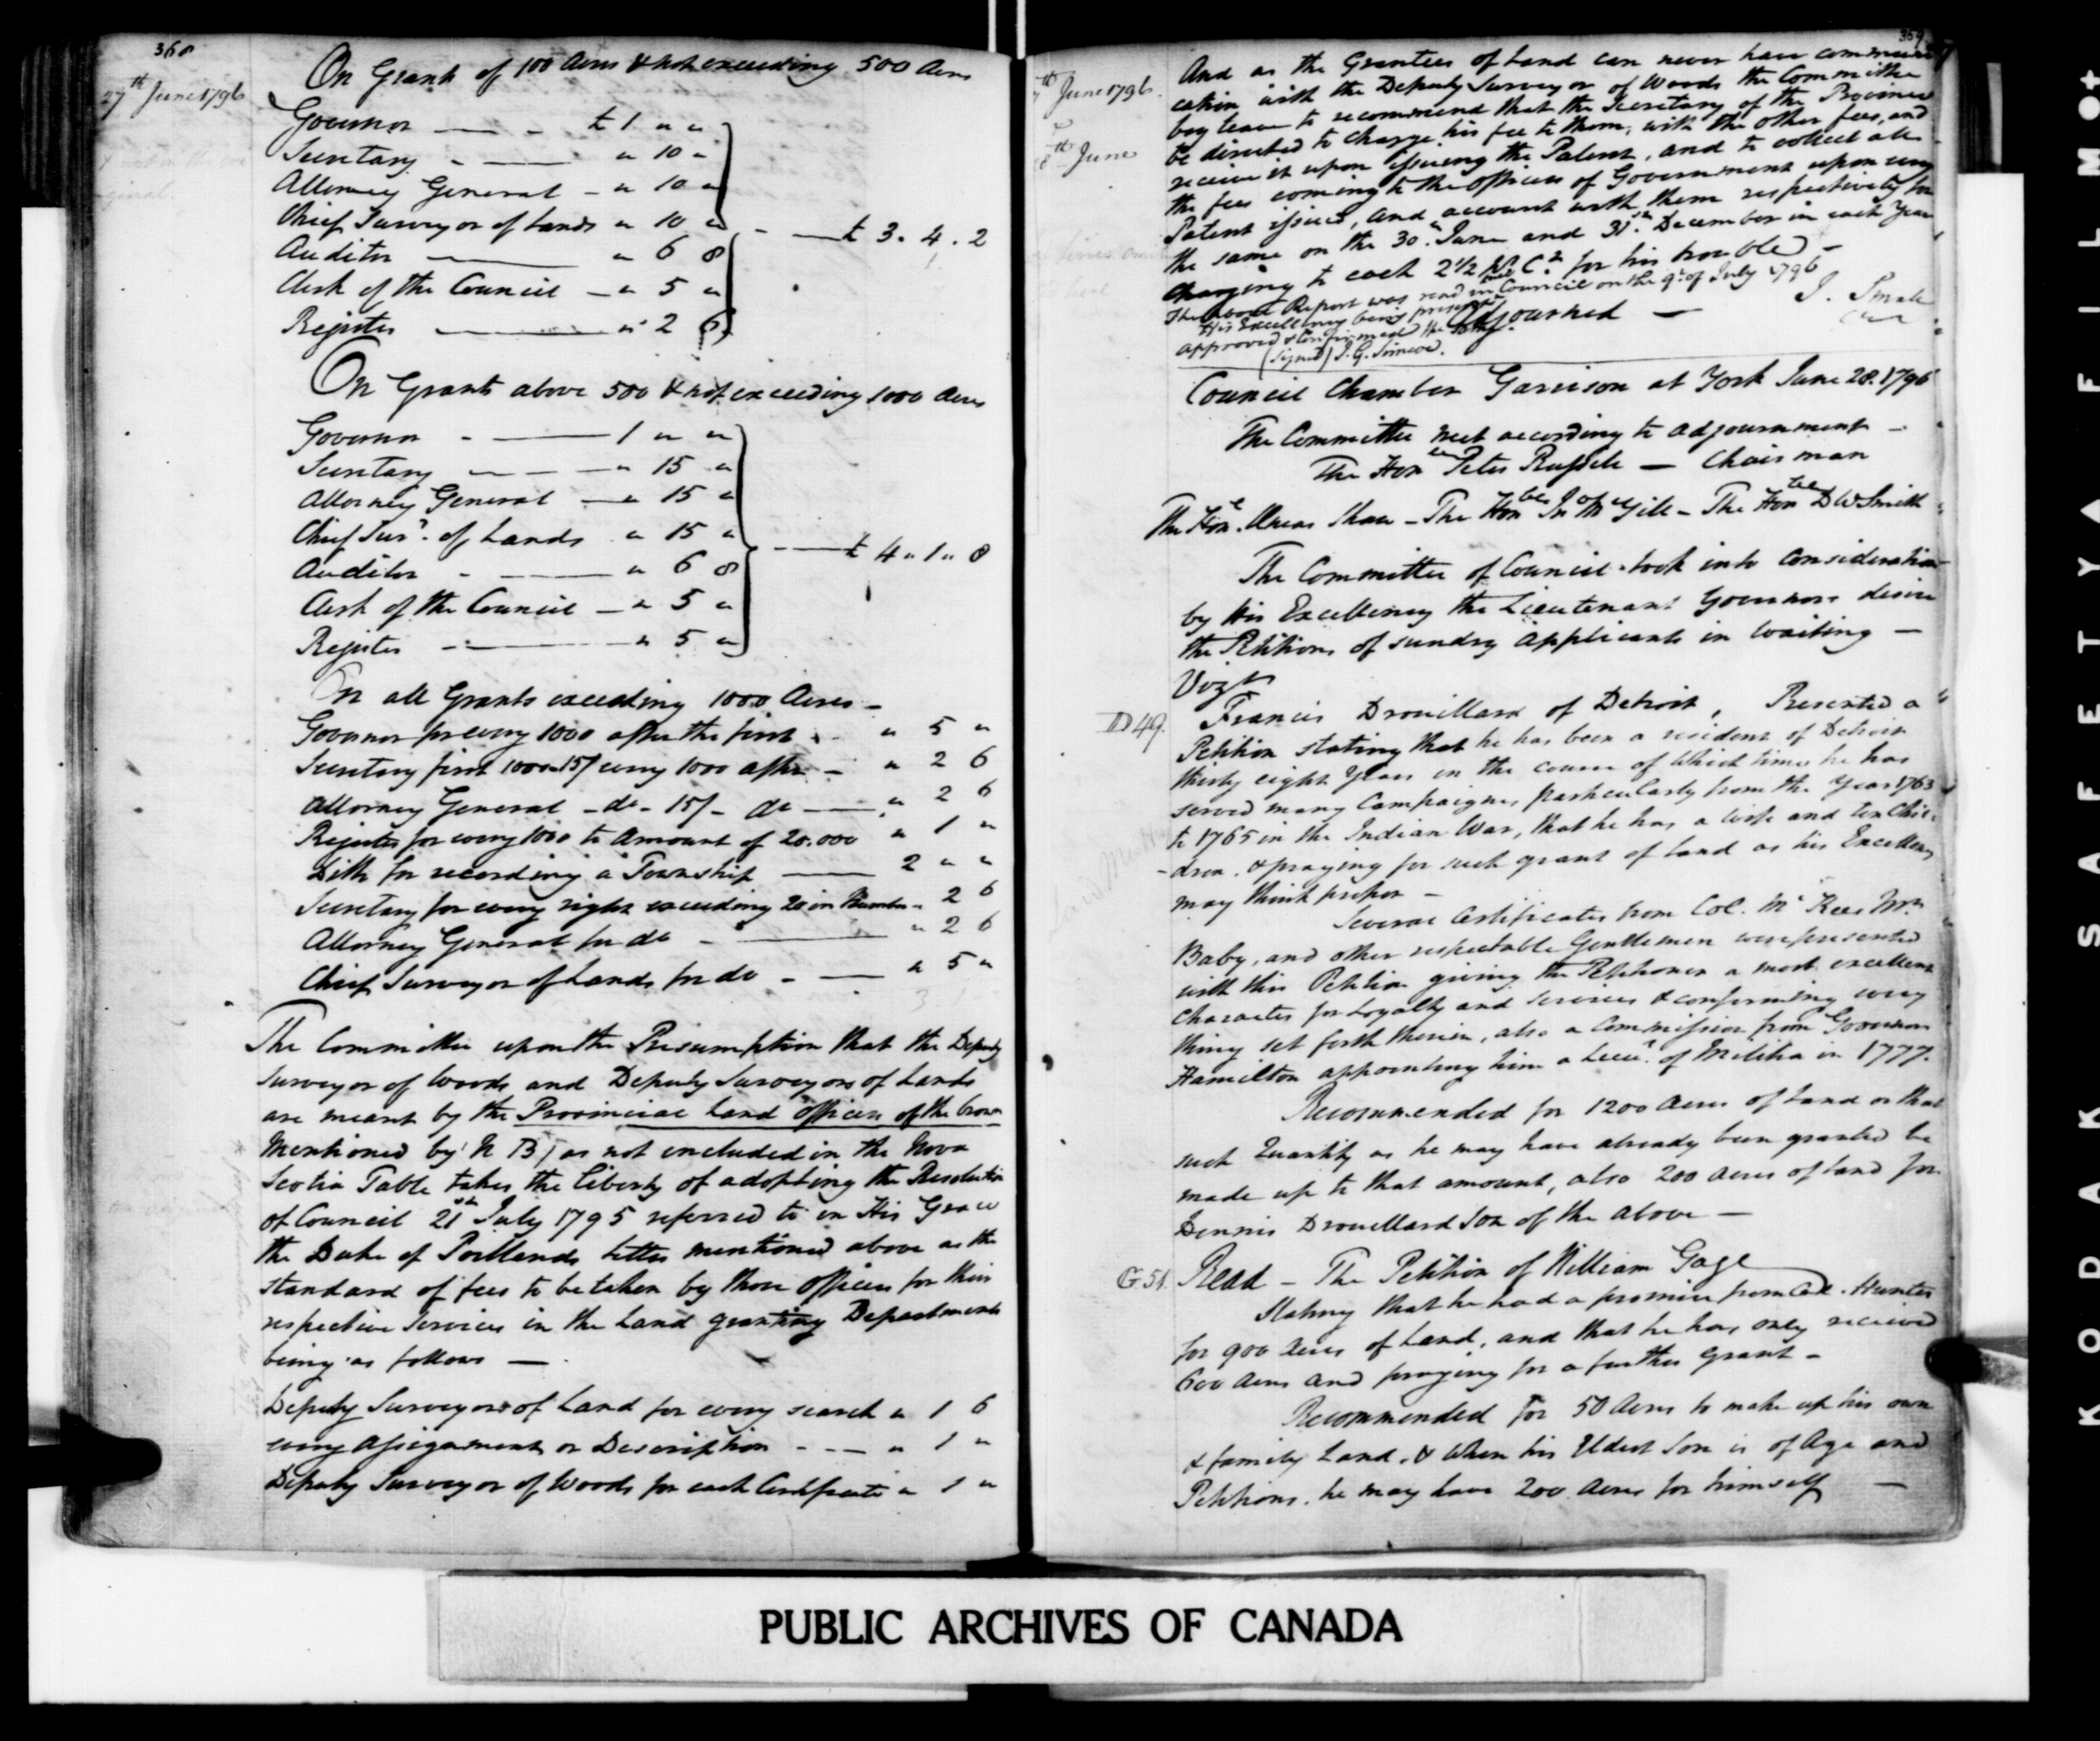 368
27th June 1796
On Grants of 100 Acres & not exceeding 500 Acres
Governor — - £ 1 " "
Secretary - — " 10 "
Attorney General - " 10 "
Chief Surveyor of Lands " 10 "
Auditor — " 6 8
Clerk of the Council - " 5 "
Register — " 2 6
- — £ 3. 4. 2
On Grants above 500 & not exceeding 1000 Acres
Governor - — 1 " "
Secretary — - — " 15 "
Attorney General — " 15 "
Chief Surr. of Lands " 15 "
Auditor - — " 6 8
Clerk of the Council — " 5 "
Register - — " 5 "
- — £ 4 " 1 " 8
On all Grants exceeding 1000 Acres -
Governor for every 1000 after the first - " 5 "
Secretary first 1000 15/ every 1000 after - " 2 6
Attorney General - do - 15/ - do — " 2 6
Register for every 1000 to Amount of 20.000 " 1 "
Ditto for recording a Township — 2 " "
Secretary for every right exceeding 20 in Number - 2 6
Attorney General for do - — " 2 6
Chief Surveyor of Lands for do - — " 5 "
The Committee upon the Presumption that the Deputy
Surveyor of Woods and Deputy Surveyors of Lands
are meant by the Provincial Land Officers of the Crown
Mentioned by N B, as not included in the Nova
Scotia Table takes the liberty of adopting the Resolution
of Council 21st July 1795 referred to in His Grace
the Duke of Portlands letter mentioned above as the
standard of fees to be taken by those Officers for their
respective Services in the Land granting Departments
being as follows —
Deputy Surveyors of Land for every search " 1 6
every Assignment or Description - - - " 1 "
Deputy Surveyor of Woods for each Certificate " 1 "
369
27th June 1796.
28th June
And as the Grantees of Land can never have communi
cation with the Deputy Surveyor of Woods the Committee
beg leave to recommend that the Secretary of the Province
be directed to charge his fee to them, with the other fees, and
receive it upon issuing the Patent, and to collect all
the fees coming to the Officers of Government upon every
Patent issued, and account with them respectively for
the same on the 30th June and 31st December in each Year
Charging to each 2 1/2 Pr Ct for his trouble -
The above Report was read in Council on the 9th of July 1796
His Excellency being present
approved & Confirmed the same.
(Signed) J. G. Simcoe.
Adjourned —
J. Small
Council Chamber Garrison at York June 28. 1796
The Committee met according to adjournment -
The Honble Peter Russell — Chairman
The Hone. Æneas Shaw - The Honble Jno McGill - The Honble D W Smith
The Committee of Council took into consideration
by His Excellency the Lieutenant Governors desire
the Petitions of sundry applicants in waiting —
Vizt
D 49.
Francis Drouillard of Detroit, Presented a
Petition stating that he has been a resident of Detroit
thirty eight Years in the course of which time he has
served many Campaigns particularly from the Year 1763
to 1765 in the Indian War, that he has a wife and ten Chil-
-dren, & praying for such grant of Land as his Excellency
may think proper -
Several Certificates from Col. McKee Mr.
Baby, and other respectable Gentlemen were presented
with this Petition giving the Petitioner a most excellent
Character for Loyalty and Services & confirming every
thing set forth therein, also a Commission from Governor
Hamilton appointing him a Lieut. of Militia in 1777.
Recommended for 1200 Acres of Land or that
such Quantity as he may have already been granted be
made up to that amount, also 200 Acres of Land for
Dennis Drouillard Son of the above —
G. 51.
Read - The Petition of William Gage
Stating that he had a promise from Col. Hunter
for 900 Acres of Land, and that he has only received
600 Acres and praying for a further Grant -
Recommended for 50 Acres to make up his own
& family Land. & When his Eldest Son is of Age and
Petitions, he may have 200 Acres for himself —
PUBLIC ARCHIVES OF CANADA
KODAK SAFETY FILM